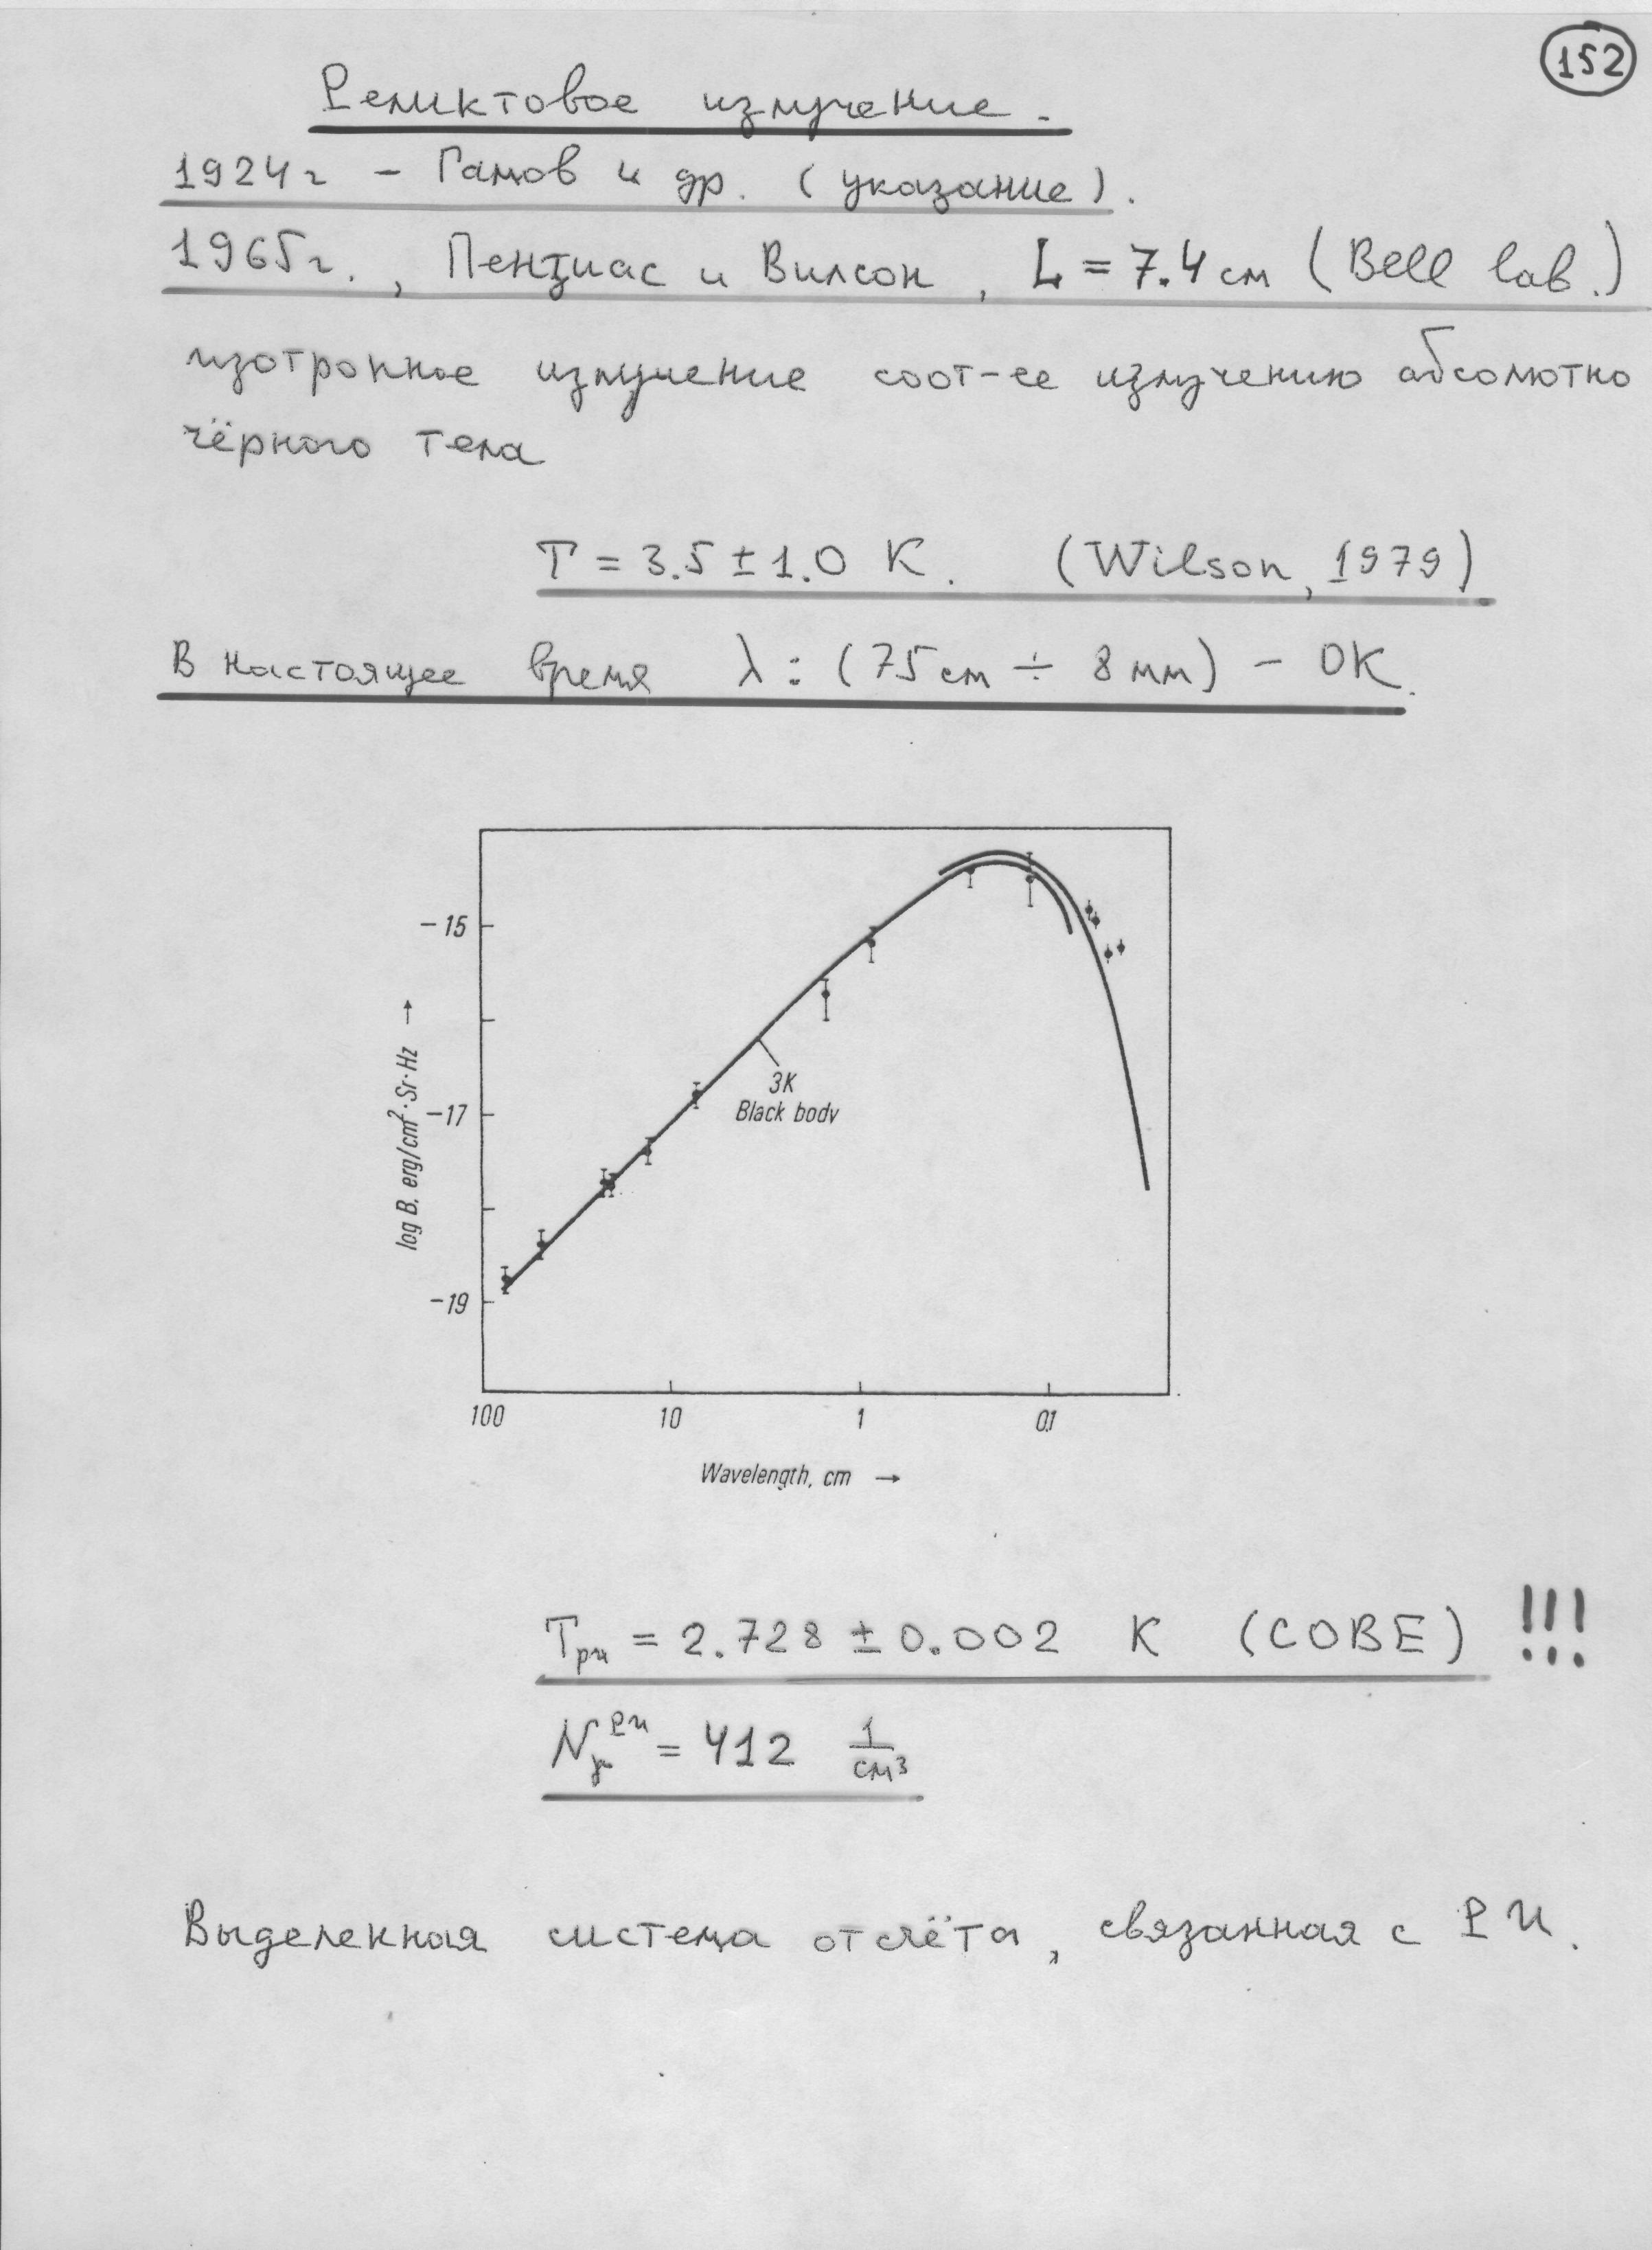 152
Реликтовое излучение.
1924г - Гамов и др. (указание).
1965г., Пензиас и Вилсон, L = 7.4 см (Bell lab.)
изотропное излучение соот-ее излучению абсолютно
чёрного тела
T = 3.5 ± 1.0 K. (Wilson, 1979)
В настоящее время λ: (75 см ÷ 8 мм) - OK.
-15
-17
-19
log B, erg/cm²·Sr·Hz →
3K
Black body
100 10 1 0.1
Wavelength, cm →
Tри = 2.728 ± 0.002 K (COBE) !!!
Nγ^РИ = 412 1/см³
Выделенная система отсчёта, связанная с РИ.